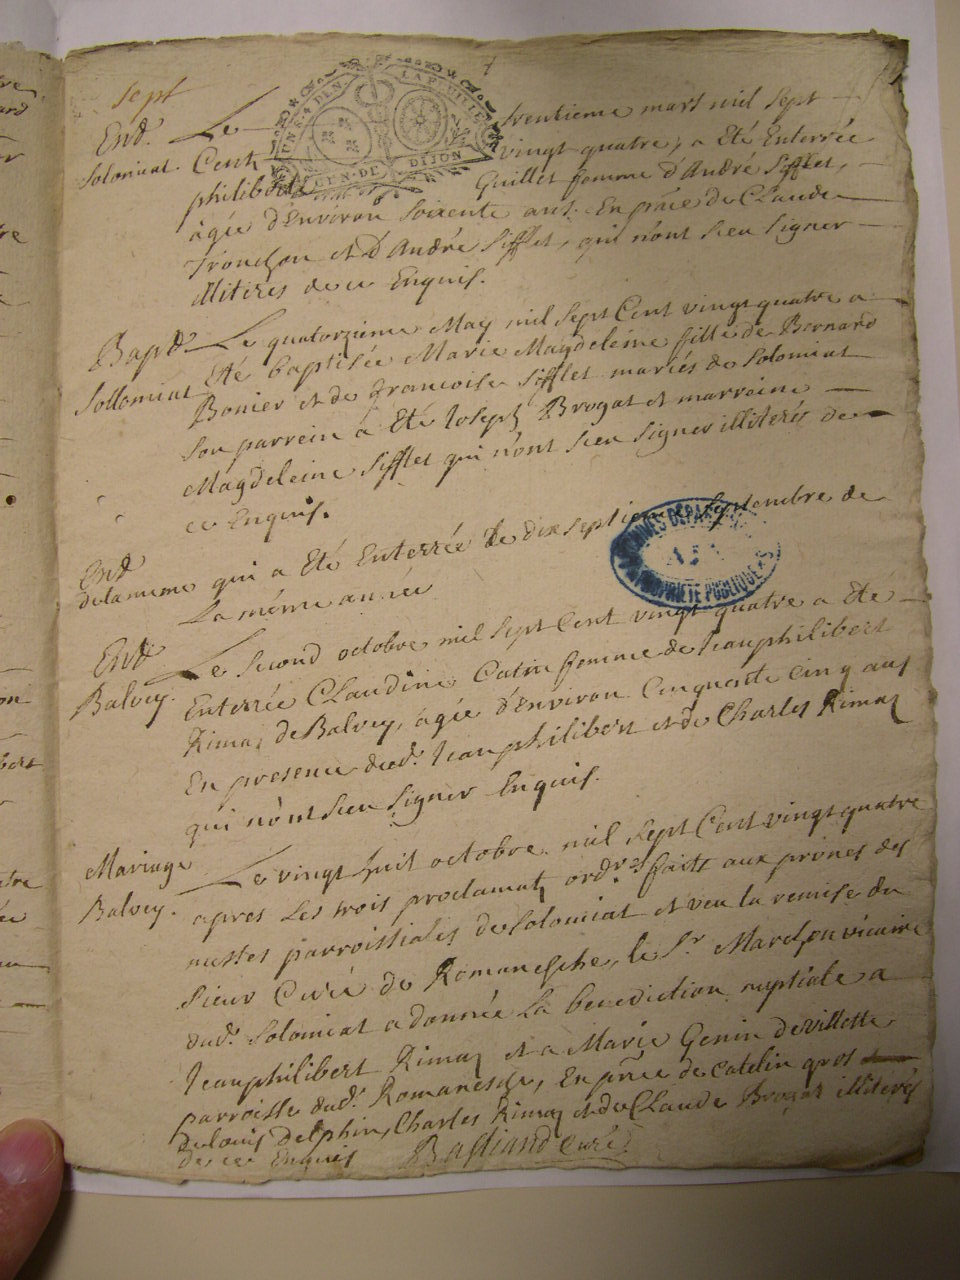 sept
Ent.
Solomiat.
Le trentieme mars mil sept
Cent vingt quatre, a Eté Enterrée
philiberte Guillet femme d'André Sifflet,
âgée d'Environ soixente ans. En pñce de Claude
Tronchon et d'André Sifflet, qui n'ont sceu signer
illiterés de ce Enquis.
UNE. 4. DEN. LA FEUILLE
GEN. DE DIJON
Bapt
Sollomiat
Le quatorzieme May mil sept Cent vingt quatre a
Eté baptisée Marie Magdeleine fille de Bernard
Bonier et de francoise Sifflet mariés de Solomiat
Son parrein a Eté Joseph Brogat et marreine
Magdeleine Sifflet qui n'ont sceu signer illiterés de
ce Enquis.
Ent
de la meme qui a Eté Enterrée Le dix septieme septembre de
La même année
ARCHIVES DEPART
AIN
PROPRIETE PUBLIQUE
Ent
Balvey.
Le Second octobre mil sept Cent vingt quatre a Ete
Enterrée CLaudine Catin femme de Jeanphilibert
Rimaz de Balvey, âgée d'Environ Cinquante cinq ans
En presence dud. Jeanphilibert et de Charles Rimaz
qui n'ont sceu signer Enquis.
Mariage
Balvey.
Le vingt huit octobre mil sept Cent vingt quatre
apres Les trois proclamat. ordres faits aux prones des
messes parroissiales de Solomiat et veu la remise du
sieur Curé de Romanesche, le Sr. vicaire
dud. Solomiat a donnée La benediction nuptiale a
Jeanphilibert Rimaz et a Marie Genin de villette
parroisse dud. Romanesche, En pñce de Catelin gros
de Louis Delphin, Charles Rimaz et de CLaude Brogat illiterés
de ce Enquis Bastiand Curé